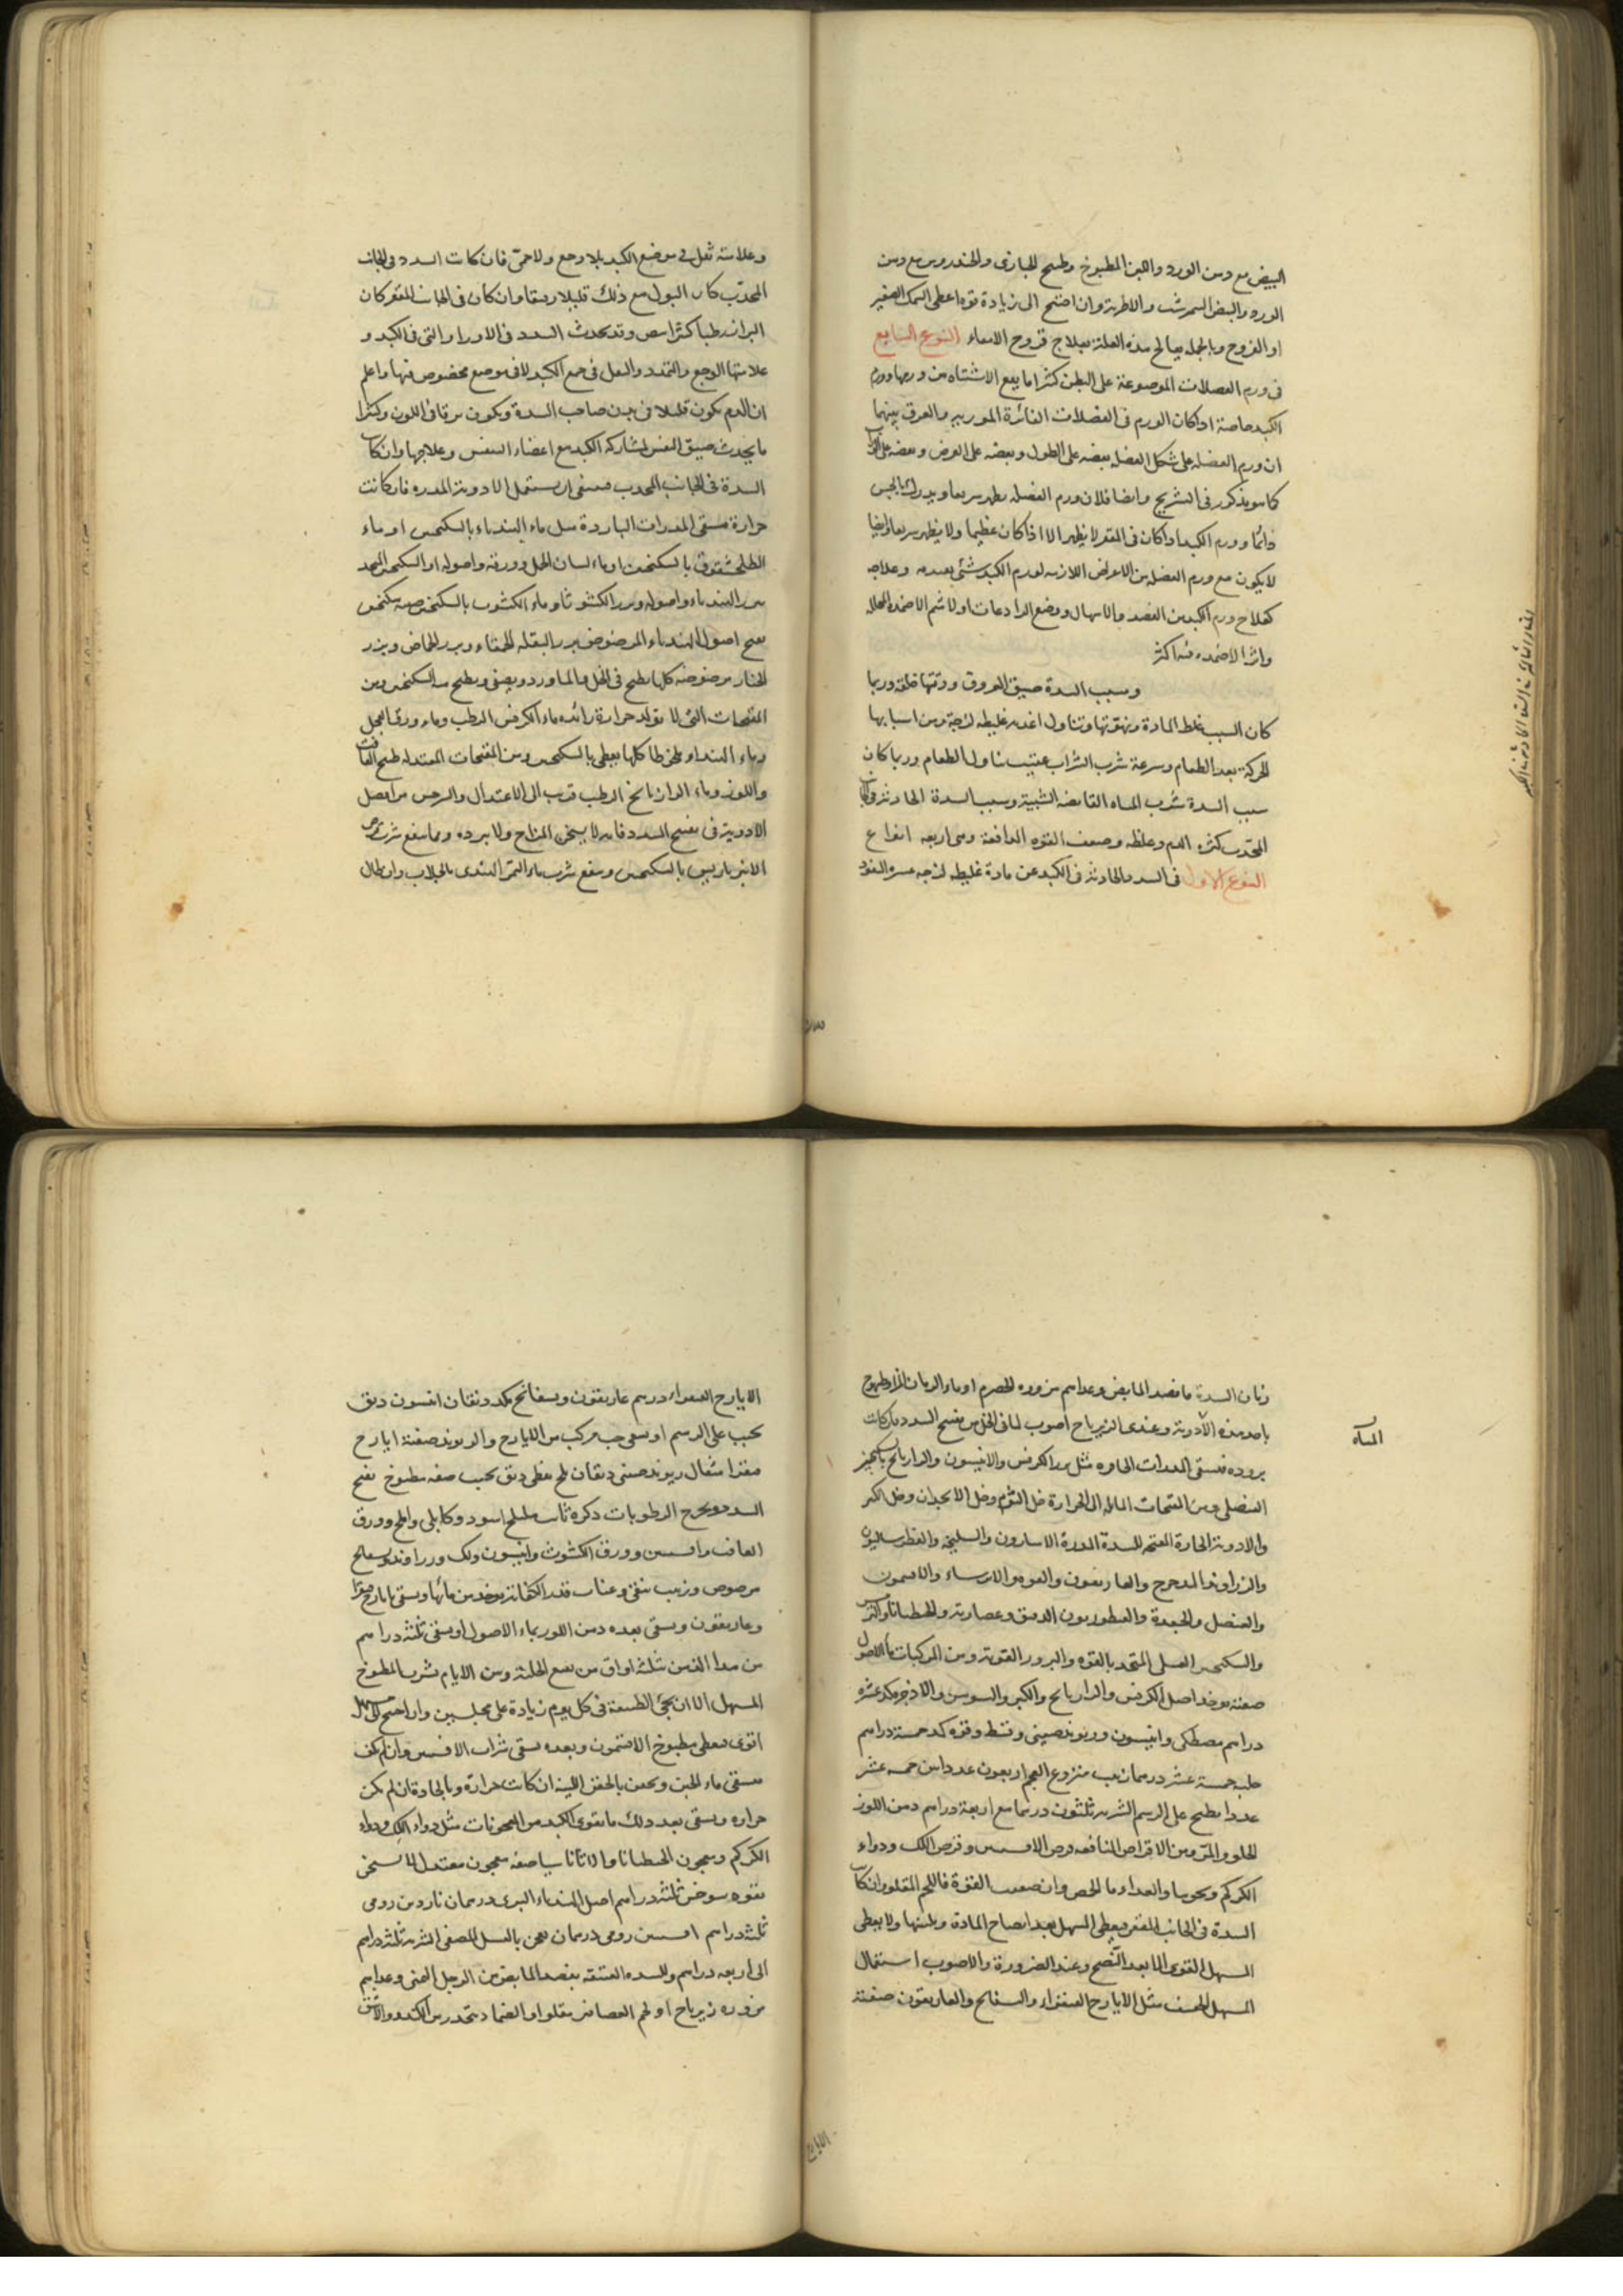 البيض مع دهن الورد واللبن المطبوخ وطبيخ الخبازى والخندروس مع دهن
الورد والبيض النيمرشت والاطرية وان احتيج الى زيادة قوة اعطى السمك الصغير
او الفروج وبالجملة يعالج هذه العلة بعلاج قروح الامعاء النوع السابع
فى ورم العضلات الموضوعة على البطن كثيرا ما يقع الاشتباه بين ورمها وورم
الكبد خاصة اذا كان الورم فى العضلات الغائرة الموربه والفرق بينهما
ان ورم العضلة على شكل العضل بعضه على الطول وبعضه على العرض وبعضه على الوراب
كما هو مذكور فى التشريح وايضا فلان ورم العضله يظهر سريعا ويدرك بالحس
دائما وورم الكبد اذا كان فى المقعر لا يظهر الا اذا كان عظيما ولا يظهر سريعا وايضا
لا يكون مع ورم العضله من الاعراض اللازمه لورم الكبد شئ يعتد به وعلاجه
كعلاج ورم الكبد من الفصد والاسهال ووضع الرادعات اولا ثم الاضمدة المحلله
واثر الاضمده فيه اكثر
وسبب السدة ضيق العروق ورقتها خلقة وربما
كان السبب غلظ المادة وتناول اغذيه غليظه لزجة ومن اسبابها
الحركة بعد الطعام وسرعة شرب الشراب عقيب تناول الطعام وربما كان
سبب السدة شرب المياه القابضه الشبية وسبب السدة الحادثة فى الجانب
المحدب كثرة الدم وغلظه وضعف القوه الدافعة وهى اربعه انواع
النوع الاول فى السدد الحادثة فى الكبد عن مادة غليظه لزجه عسره النفوذ
وعلامته ثقل فى موضع الكبد بلا وجع ولا حمى فان كانت السدد فى الجانب
المحدب كان البول مع ذلك قليلا رقيقا وان كان فى الجانب المقعر كان
البراز رطبا كثيرا ابيض وقد تحدث السدد فى الاوراد التى فى الكبد و
علامتها الوجع والتمدد والثقل فى جميع الكبد لا فى موضع مخصوص منها واعلم
ان الدم يكون قليلا فى بدن صاحب السدة ويكون يرقانى اللون وكثيرا
ما يحدث ضيق النفس لمشاركة الكبد مع اعضاء التنفس وعلاجها ان كان
السدة فى الجانب المحدب فينبغى ان يستعمل الادوية المدره فان كانت
حرارة فيسقى المدرات الباردة مثل ماء الهندباء بالسكنجبين او ماء
الطلخشقوق بالسكنجبين او ماء لسان الحمل وورقه واصوله او السكنجبين المتخذ
من بزر الهندباء واصوله وبزر الكشوثا وماء الكشوث بالسكنجبين صفة سكنجبين
يفتح اصول الهندباء المرضوض بزر البقله الحمقاء وبزر الحماض وبزر
الخيار مرضوضه كلها يطبخ فى الخل والماورد ويصفى ويطبخ منه السكنجبين ومن
المفتحات التى لا تولد حرارة زائده ماء الكرفس الرطب وماء ورق الفجل
وماء الهندباء مخلوطا كلها يعطى بالسكنجبين ومن المفتحات المعتدله طبيخ الغافث
واللوز وماء الرازيانج الرطب قريب الى الاعتدال والترمس من افضل
الادوية فى تفتيح السدد فانه لا يسخن المزاج ولا يبرده ومما ينفع شرب قرص
الانبرباريس بالسكنجبين وينفع شرب ماء التمر الهندى بالجلاب وان طال
زمان السدة فافصد المابض وغذاهم مزورة الحصرم او ماء الرمان المز وطيهوج
باحد هذه الادوية وعندى الزيرباج اصوب لما فى الخل من تفتيح السدد وان كانت
المسـاه
برودة فيسقى المدرات الحاره مثل بزر الكرفس والانيسون والرازيانج بالسكنجبين
العنصلى ومن المفتحات المائلة الى الحرارة خل الثوم وخل الانجدان وخل الكبر
والادوية الحارة المفتحه للسدة المدرة الاسارون والسليخه والفطراساليون
والزراوند المدحرج والغاريقون والفوه والايرساء والافتيمون
والعنصل والجعدة والقنطوريون الدقيق وعصارته والجنطيانا والترمس
والسكنجبين العسلى المتخذ بالفوه والبزور القوية ومن المركبات ماء الاصول
صفته يوخذ اصل الكرفس والرازيانج والكبر والسوسن والاذخر مكد عشره
دراهم مصطكى وانيسون وريوند صينى وقسط وفوه مكد خمسة دراهم
حلبه خمسة عشر درهما زبيب منزوع العجم اربعون عددا تين خمسه عشر
عددا يطبخ على الرسم الشربه ثلثون درهما مع اربعة دراهم دهن اللوز
الحلو والمر ومن الاقراص النافعه قرص الافسنتين وقرص اللك ودواء
الكركم ونحوها والغداء ماء الحمص وان ضعفت القوة فاللحم المقلو وان كان
السدة فى الجانب المقعر فيعطى المسهل بعد انضاج المادة وتليينها ولا يعطى
المسهل القوى الا بعد النضج وعند الضرورة والاصوب استعمال
المسهل الخفيف مثل الايارج الفيقراء والبسفايج والغاريقون صفته
الايارج الفيقراء درهم غاريقون وبسفايج مكد دنقان انيسون دنق
يحبب على الرسم او يسقى حب مركب من الايارج والريوند صفته ايارج
فيقرا مثقال ريوند صينى دنقان ملح نفطى دنق يحبب صفه مطبوخ يفتح
السدد ويخرج الرطوبات ذكره ثابت هليلج اسود وكابلى واملج وورق
الغافث وافسنتين وورق الكشوث وانيسون ولك وزراوند وبسفايج
مرضوض وزبيب منقى وعناب قدر الكفاية يوخذ من مائها ويسقى بايارج فيقرا
وغاريقون ويسقى بعده دهن اللوز بماء الاصول او يسقى ثلثة دراهم
من هذا الدهن بثلث اواق من نقيع الحلبة ومن الايام بشرب المطبوخ
المسهل الا ان تجئ الطبيعة فى كل يوم زيادة على مجلسين وان احتيج الى مسهل
اقوى فيعطى مطبوخ الافتيمون وبعده يسقى شراب الافسنتين وان لم يكف
فيسقى ماء الجبن ويحقن بالحقن اللينة ان كانت حرارة وبالحادة ان لم يكن
حراره ويسقى بعد ذلك ما يقوى الكبد من المعجونات مثل دواء اللك ودواء
الكركم ومعجون الجنطيانا والاثاناسيا صفه معجون معتدل لا يسخن
بقوه يوخذ ثلثة دراهم اصل الهندباء البرى درهمان ناردين رومى
ثلثة دراهم افسنتين رومى درهمان يعجن بالعسل المصفى الشربه ثلثة دراهم
الى اربعه دراهم وللسده العتيقه يفصد المابض من الرجل اليمنى وغداهم
مزوره زيرباج او لحم العصافير مقلوا والضماد يتخذ من الكندر والاشق